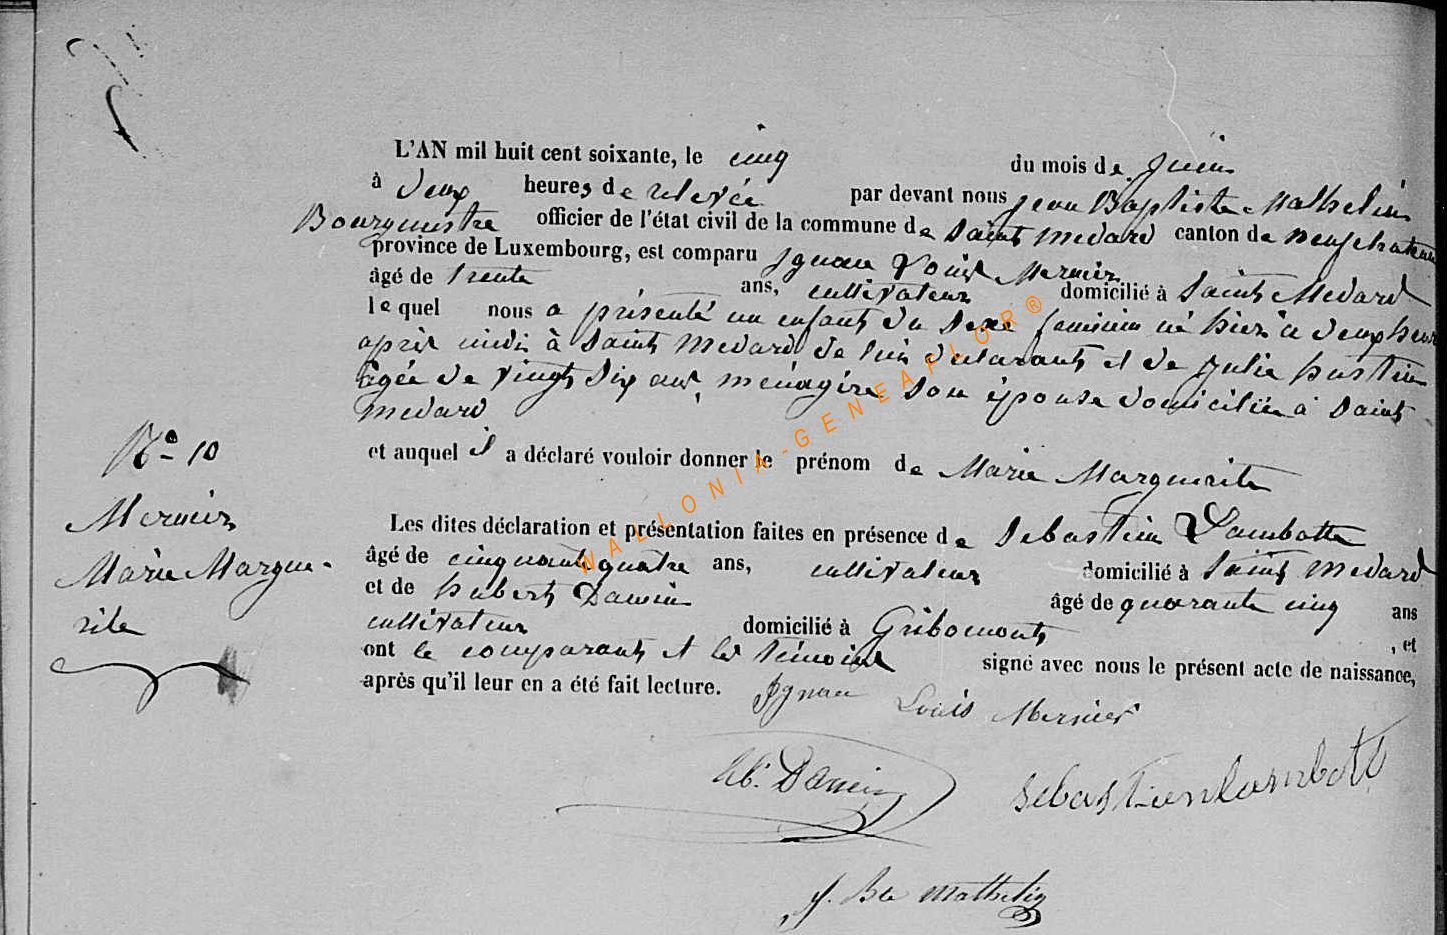 L'AN mil huit cent soixante, le cinq du mois de juin
à deux heures de relevée par devant nous jean Baptiste Mathelin
Bourgmestre officier de l'état civil de la commune de Saint Medard canton de neufchateau
province de Luxembourg, est comparu Ignace Louis Mernier
âgé de trente ans, cultivateur domicilié à Saint Medard
lequel nous a présenté un enfant du sexe feminin né hier à deux heures
après midi à Saint Medard de lui déclarant et de Julie hustin
âgée de vingt six ans, ménagère son épouse domiciliée à Saint
medard
et auquel il a déclaré vouloir donner le prénom de Marie Marguerite
No 10
Mernier
Marie Margue-
rite
Les dites déclaration et présentation faites en présence de Sebastien Lambotte
âgé de cinquante quatre ans, cultivateur domicilié à Saint Medard
et de hubert Damin âgé de quarante cinq ans
cultivateur domicilié à Gribomont , et
ont le comparant et les témoins signé avec nous le présent acte de naissance,
après qu'il leur en a été fait lecture. Ignace Louis Mernier
hb. Damin sebastienlambott
j. Bte Mathelin
WALLONIA-GENEAFLOR®